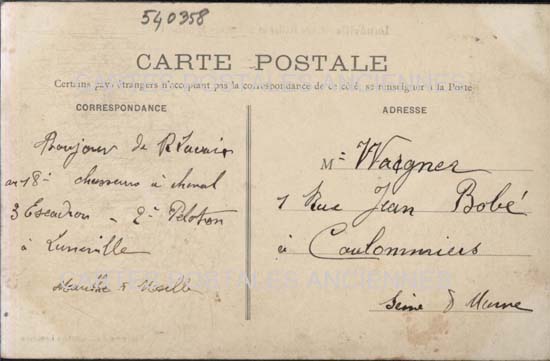 540358
CARTE POSTALE
Certains pays étrangers n'acceptant pas la correspondance de ce côté, se renseigner à la Poste
CORRESPONDANCE
Bonjour de
au 18e chasseurs à cheval
3 Escadron - 2e Peloton
à Luneville
Meurthe & Moselle
ADRESSE
Mr Wagner
1 Rue Jean Bobé
à Coulommiers
Seine & Marne
CARTES POSTALES ANCIENNES
CARTES POSTALES ANCIENNES